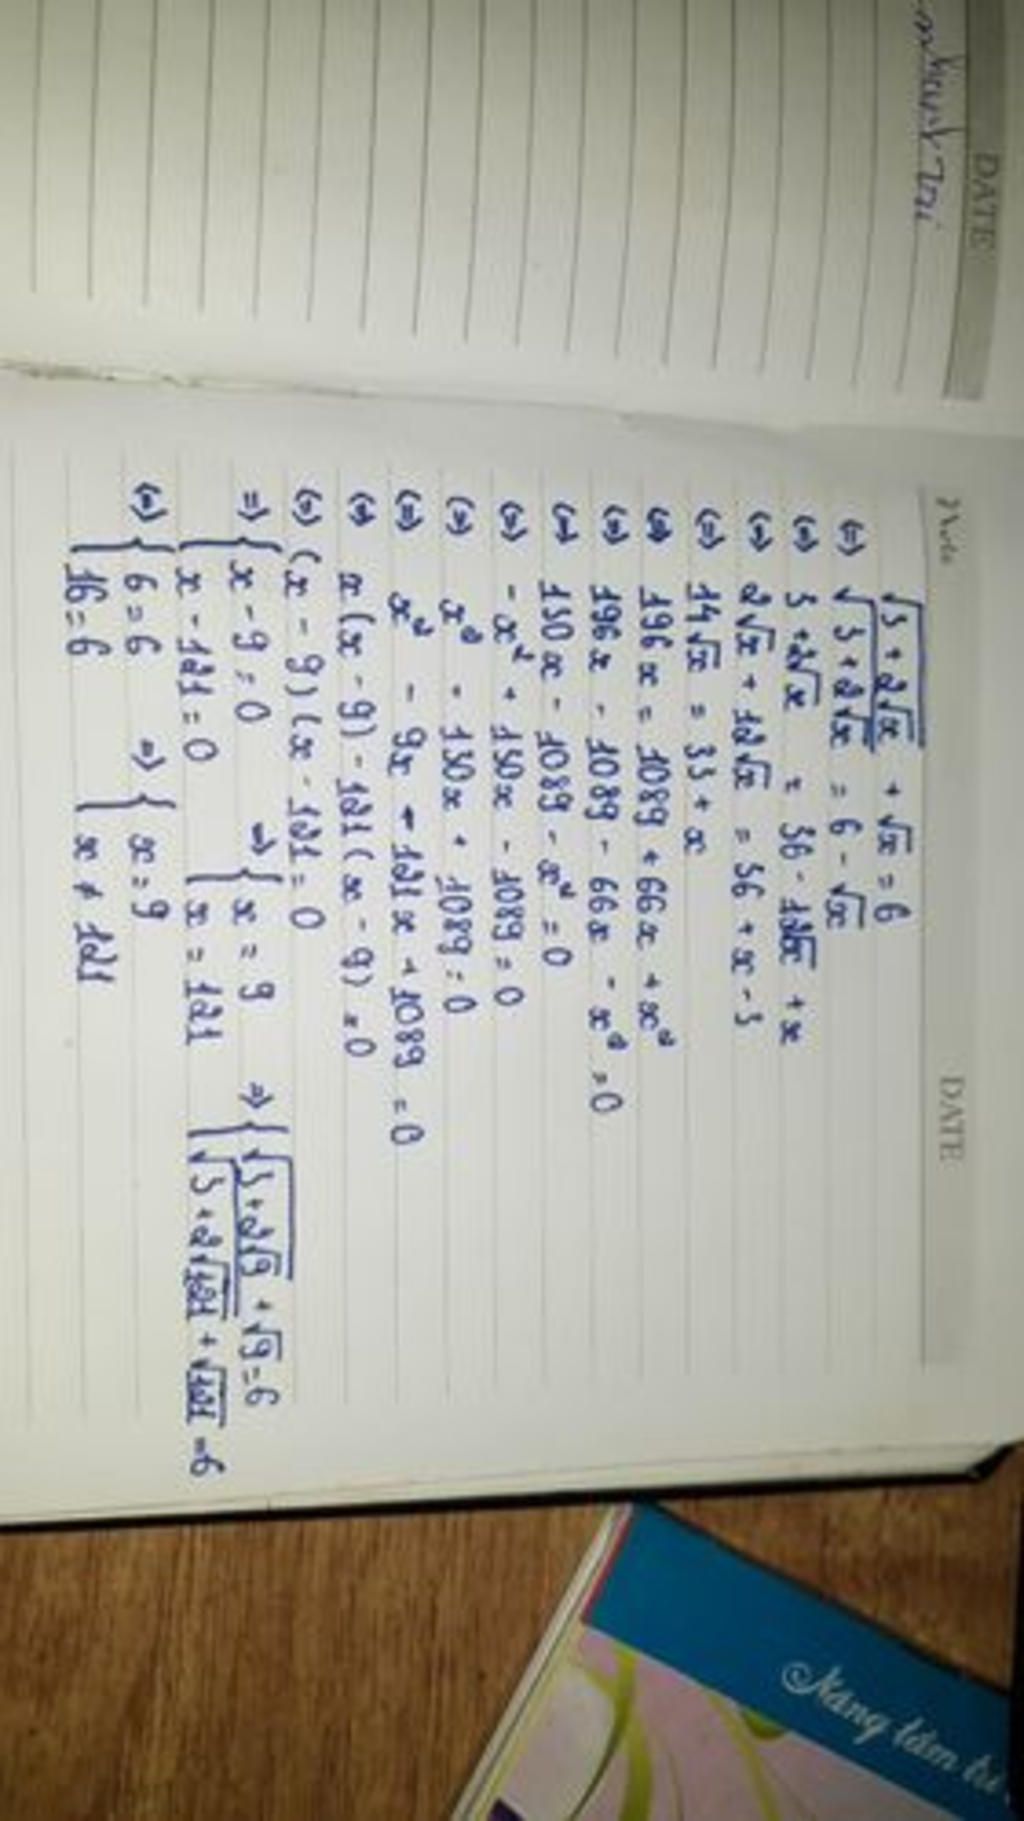 DATE
Note
DATE
√(3+2√x) + √x = 6
(=) √(3+2√x) = 6 - √x
(=) 3+2√x = 36 - 12√x + x
(=) 2√x + 12√x = 36 + x - 3
(=) 14√x = 33 + x
(=) 196x = 1089 + 66x + x²
(=) 196x - 1089 - 66x - x² = 0
(=) 130x - 1089 - x² = 0
(=) -x² + 130x - 1089 = 0
(=) x² - 130x + 1089 = 0
(=) x² - 9x - 121x + 1089 = 0
(=) x(x - 9) - 121(x - 9) = 0
(=) (x - 9)(x - 121 = 0
=) { x - 9 = 0 =) { x = 9 =) { √(3+2√9) + √9 = 6
x - 121 = 0 x = 121 √(3+2√121) + √121 = 6
(=) { 6 = 6 =) { x = 9
16 = 6 x ≠ 121
Nâng tầm tri